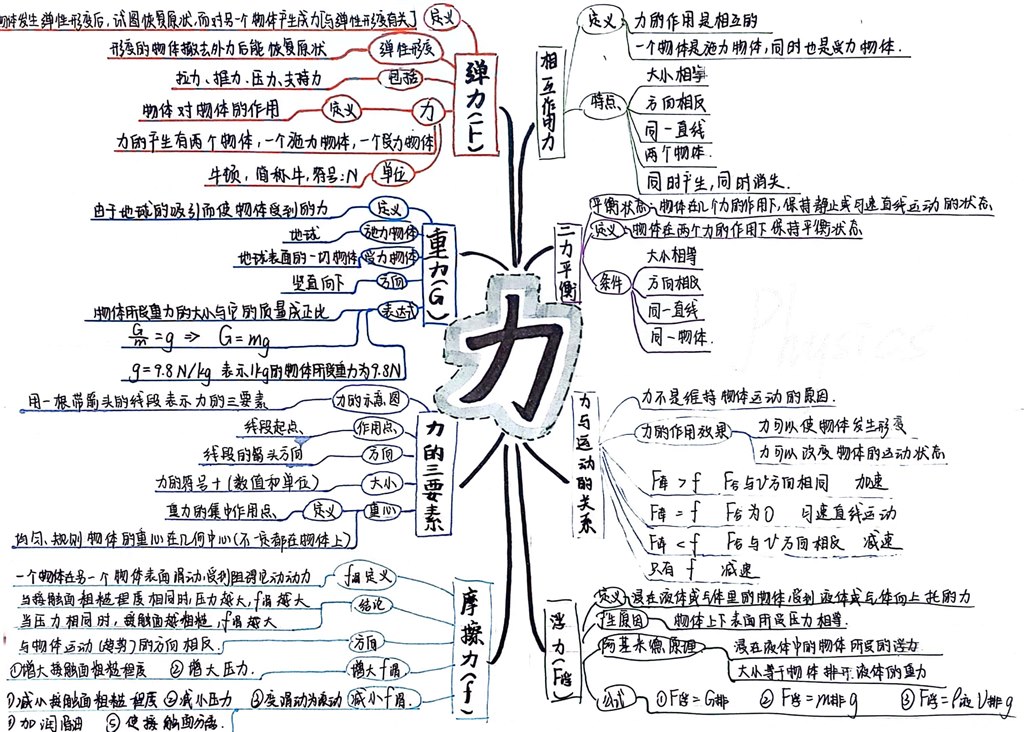 力
弹力(F)
物体发生弹性形变后,试图恢复原状,而对另一个物体产生成力[与弹性形变有关]
定义
形变的物体撤去外力后能恢复原状
弹性形变
拉力、推力、压力、支持力
包括
物体对物体的作用
定义
力
力的产生有两个物体,一个施力物体,一个受力物体
牛顿,简称牛,符号:N
单位
重力(G)
由于地球的吸引而使物体受到的力
定义
地球
施力物体
地球表面的一切物体
受力物体
竖直向下
方向
物体所受重力的大小与它的质量成正比
表达式
G/m=g ⇒ G=mg
g=9.8N/kg 表示1kg的物体所受重力为9.8N
力的三要素
用一根带箭头的线段表示力的三要素
力的示意图
线段起点、
作用点、
线段的箭头方向
方向
力的符号+(数值和单位)
大小
重力的集中作用点、
定义
重心
均匀、规则物体的重心在几何中心(不一定都在物体上)
摩擦力(f)
一个物体在另一个物体表面滑动,受到阻碍它动动力
f滑定义
当接触面粗糙程度相同时,压力越大,f滑越大
当压力相同时,接触面越粗糙,f滑越大
结论
与物体运动(趋势)的方向相反
方向
①增大接触面粗糙程度 ②增大压力.
增大f滑
①减小接触面粗糙程度 ②减小压力 ③变滑动为滚动
减小f滑.
④加润滑油 ⑤使接触面分离.
相互作用力
定义
力的作用是相互的
一个物体是施力物体,同时也是受力物体.
特点、
大小相等
方向相反
同一直线
两个物体.
同时产生,同时消失.
二力平衡
平衡状态:物体在几个力的作用下,保持静止或匀速直线运动的状态
定义
物体在两个力的作用下保持平衡状态
条件
大小相等
方向相反
同一直线
同一物体.
Physics
力与运动的关系
力不是维持物体运动的原因.
力的作用效果
力可以使物体发生形变
力可以改变物体的运动状态
F牵 > f F合与v方向相同 加速
F牵 = f F合为0 匀速直线运动
F牵 < f F合与v方向相反 减速
只有f 减速
浮力(F浮)
定义
浸在液体或气体里的物体受到液体或气体向上托的力
产生原因
物体上下表面所受压力相等.
阿基米德原理
浸在液体中的物体所受的浮力
大小等于物体排开液体的重力
公式
①F浮=G排 ②F浮=m排g ③F浮=ρ液V排g